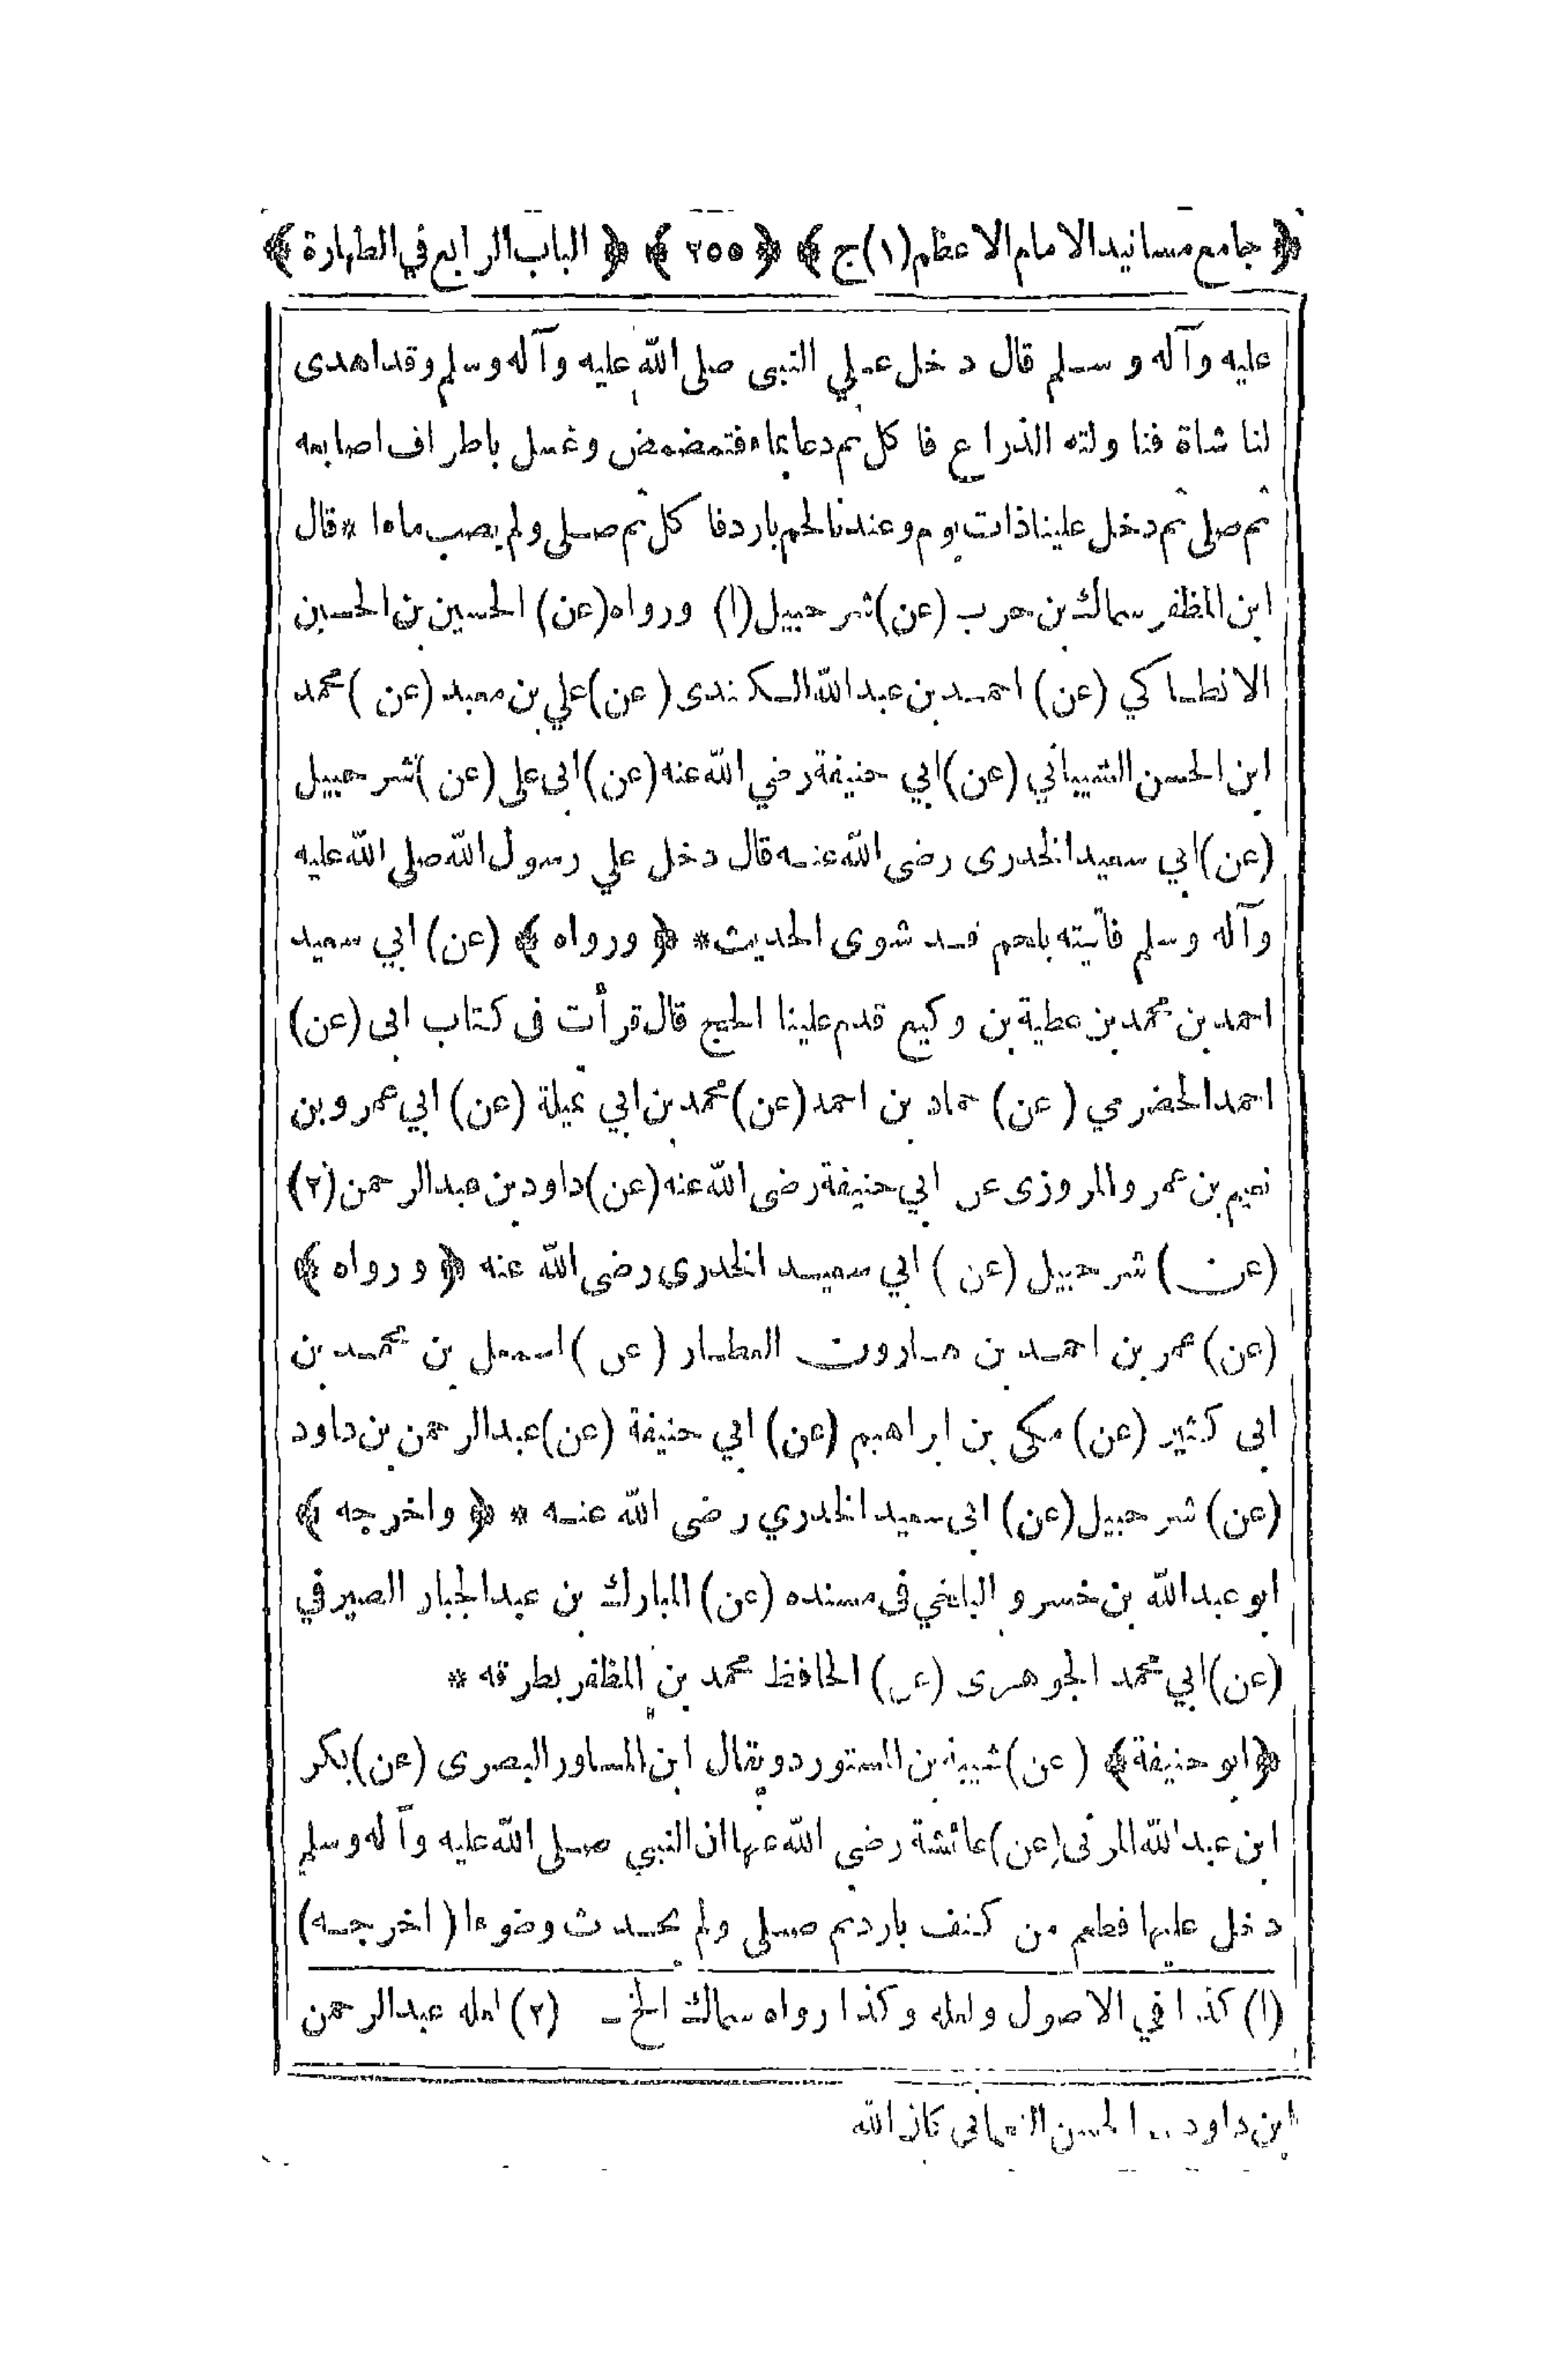 ﴿ جامع مسانيد الامام الاعظم (١) ج ﴾ ﴿ ٢٥٥ ﴾ ﴿ الباب الرابع في الطهارة ﴾
عليه وآله وسلم قال دخل علي النبى صلى الله عليه وآله وسلم وقد اهدى
لنا شاة فناولته الذراع فاكل ثم دعا بماء فتمضمض وغسل باطراف اصابعه
ثم صلى ثم دخل علينا ذات يوم وعندنا لحم بارد فاكل ثم صلى ولم يصب ماءا * قال
ابن المظفر سماك بن حرب (عن) شرحبيل (١) ورواه (عن) الحسين بن الحسين
الانطاكي (عن) احمد بن عبد الله الكندى (عن) علي بن معبد (عن) محمد
ابن الحسن الشيباني (عن) ابي حنيفة رضي الله عنه (عن) ابى على (عن) شرحبيل
(عن) ابي سعيد الخدرى رضى الله عنه قال دخل علي رسول الله صلى الله عليه
وآله وسلم فأتيته بلحم قد شوى الحديث * ﴿ ورواه ﴾ (عن) ابي سعيد
احمد بن محمد بن عطية بن وكيع قدم علينا الحج قال قرأت فى كتاب ابى (عن)
احمد الحضرمي (عن) حماد بن احمد (عن) محمد بن ابي عيلة (عن) ابي عمرو بن
نعيم بن عمرو المروزى عن ابي حنيفة رضى الله عنه (عن) داود بن عبد الرحمن (٢)
(عن) شرحبيل (عن) ابي سعيد الخدرى رضى الله عنه ﴿ ورواه ﴾
(عن) عمر بن احمد بن هارون العطار (عن) اسمعيل بن محمد بن
ابى كثير (عن) مكى بن ابراهيم (عن) ابي حنيفة (عن) عبد الرحمن بن داود
(عن) شرحبيل (عن) ابى سعيد الخدري رضى الله عنه * ﴿ واخرجه ﴾
ابو عبد الله بن خسرو البلخي فى مسنده (عن) المبارك بن عبد الجبار الصيرفي
(عن) ابي محمد الجوهرى (عن) الحافظ محمد بن المظفر بطرقه *
﴿ ابو حنيفة ﴾ (عن) شيبة بن المستورد ويقال ابن المساور البصرى (عن) بكر
ابن عبد الله المزنى (عن) عائشة رضي الله عنها ان النبي صلى الله عليه وآله وسلم
دخل عليها فطعم من كتف بارد ثم صلى ولم يحدث وضوءا (اخرجه)
(١) كذا في الاصول ولعله وكذا رواه سماك الخ – (٢) لعله عبد الرحمن
ابن داود .. الحسن النعمانى كان الله